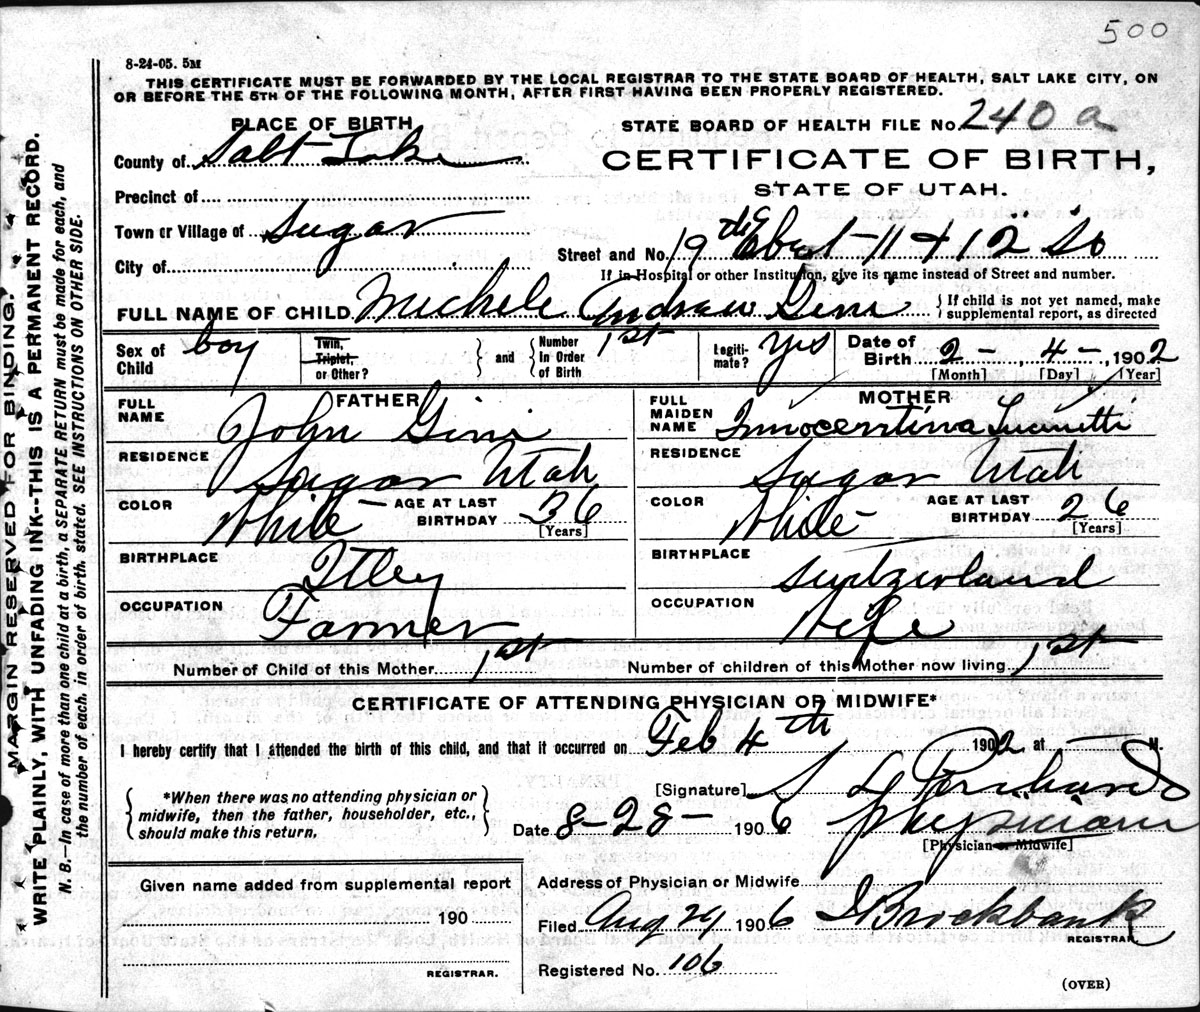 500
8-24-05. 5M
THIS CERTIFICATE MUST BE FORWARDED BY THE LOCAL REGISTRAR TO THE STATE BOARD OF HEALTH, SALT LAKE CITY, ON
OR BEFORE THE 5TH OF THE FOLLOWING MONTH, AFTER FIRST HAVING BEEN PROPERLY REGISTERED.
PLACE OF BIRTH
STATE BOARD OF HEALTH FILE No. 240 a
County of Salt Lake
CERTIFICATE OF BIRTH,
STATE OF UTAH.
Precinct of
Town or Village of Sugar
Street and No. 19th E bet 11 & 12 So
City of
If in Hospital or other Institution, give its name instead of Street and number.
FULL NAME OF CHILD Michele Andrew Gini
{If child is not yet named, make
supplemental report, as directed
Sex of
Child boy
Twin,
Triplet,
or Other?
and
Number
In Order
of Birth 1st
Legiti-
mate? Yes
Date of
Birth 2 - , 4 - , 1902
[Month] [Day] [Year]
FATHER
FULL
NAME John Gini
RESIDENCE Sugar Utah
COLOR White
AGE AT LAST
BIRTHDAY 36
[Years]
BIRTHPLACE Itley
OCCUPATION Farmer
MOTHER
FULL
MAIDEN
NAME Innocentina
RESIDENCE Sugar Utah
COLOR White
AGE AT LAST
BIRTHDAY 26
[Years]
BIRTHPLACE Switzerland
OCCUPATION Wife
Number of Child of this Mother 1st
Number of children of this Mother now living 1st
CERTIFICATE OF ATTENDING PHYSICIAN OR MIDWIFE*
I hereby certify that I attended the birth of this child, and that it occurred on Feb 4th 1902 at M.
*When there was no attending physician or
midwife, then the father, householder, etc.,
should make this return.
[Signature]
Date 8-28- 1906 Physician
[Physician or Midwife]
Given name added from supplemental report
190
REGISTRAR.
Address of Physician or Midwife
Filed Aug 29 1906 Brockbank
REGISTRAR.
Registered No. 106
(OVER)
MARGIN RESERVED FOR BINDING.
WRITE PLAINLY, WITH UNFADING INK--THIS IS A PERMANENT RECORD.
N. B.—In case of more than one child at a birth, a SEPARATE RETURN must be made for each, and
the number of each, in order of birth, stated. SEE INSTRUCTIONS ON OTHER SIDE.